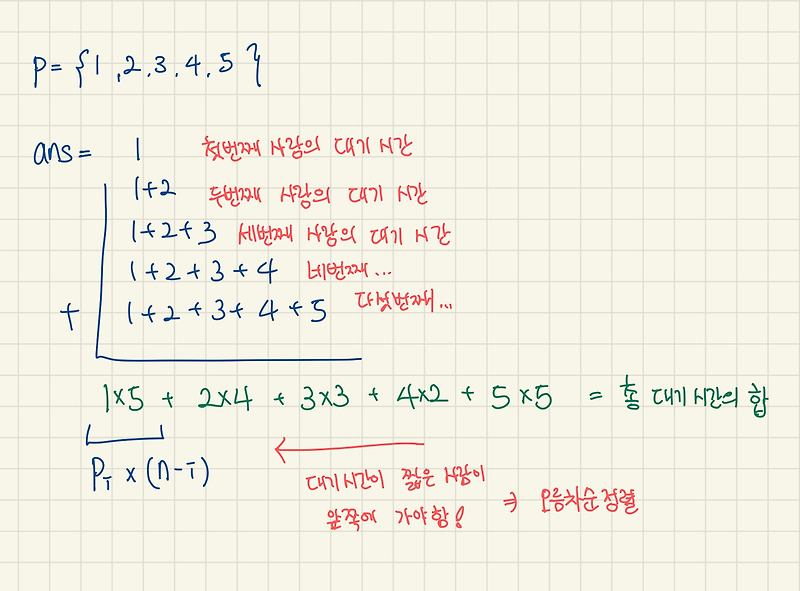 P = {1, 2, 3, 4, 5}
ans = 1 첫번째 사람의 대기 시간
1+2 두번째 사람의 대기 시간
1+2+3 세번째 사람의 대기 시간
1+2+3+4 네번째...
+ 1+2+3+4+5 다섯번째...
1×5 + 2×4 + 3×3 + 4×2 + 5×5 = 총 대기시간의 합
Pi × (n-i)
대기시간이 짧은 사람이
앞쪽에 가야함! ⇒ 오름차순 정렬